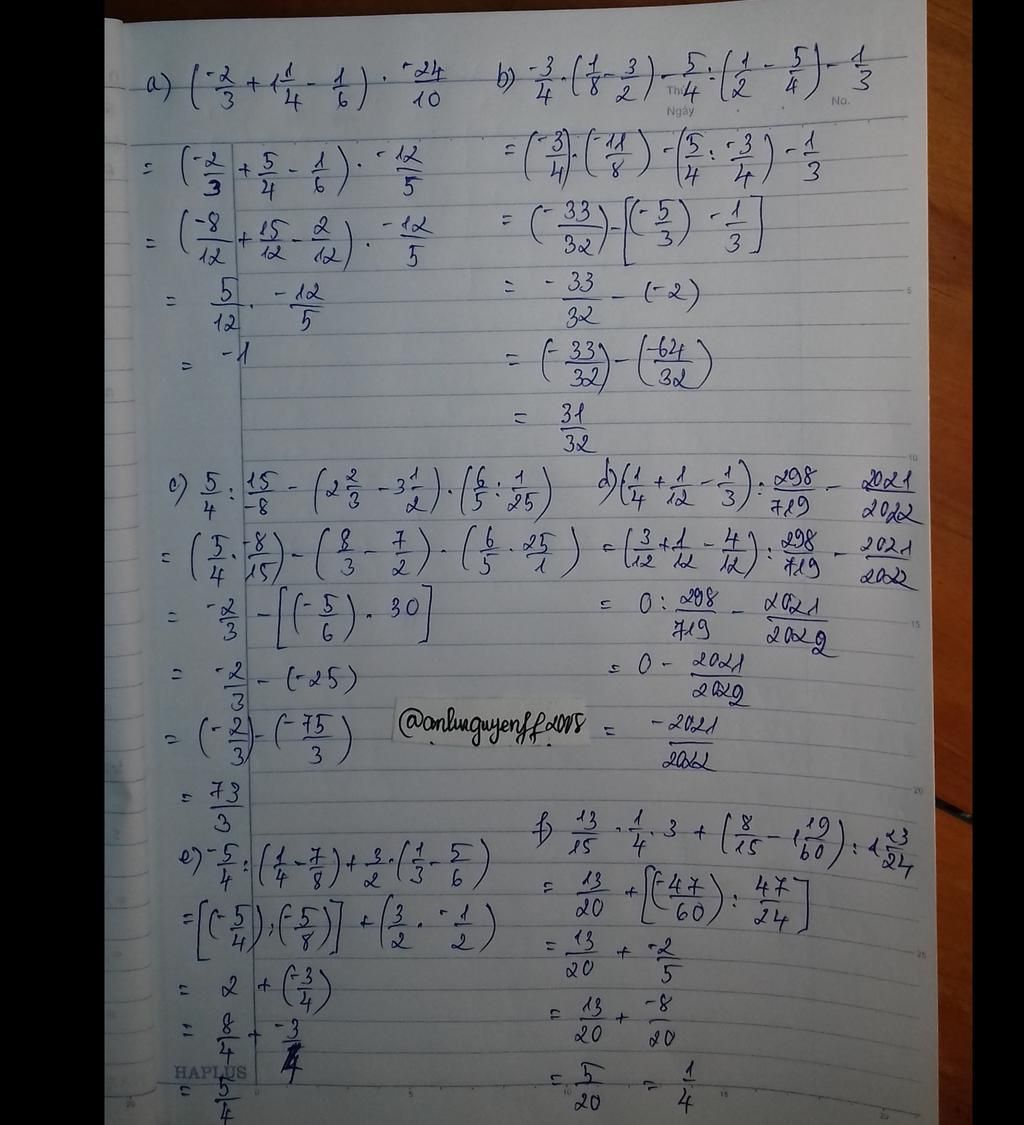 a) (-2/3 + 1 1/4 - 1/6) · -24/10
= (-2/3 + 5/4 - 1/6) · -12/5
= (-8/12 + 15/12 - 2/12) · -12/5
= 5/12 · -12/5
= -1
b) -3/4 · (1/8 - 3/2) - 5/4 : (1/2 - 5/4) - 1/3
Ngày
No.
= (-3/4) · (-11/8) - (5/4 : -3/4) - 1/3
= (-33/32) - [(-5/3) - 1/3]
= -33/32 - (-2)
= (-33/32) - (-64/32)
= 31/32
c) 5/4 : 15/-8 - (2 2/3 - 3 1/2) · (6/5 : 1/25)
= (5/4 · -8/15) - (8/3 - 7/2) · (6/5 · 25/1)
= -2/3 - [(-5/6) · 30]
= -2/3 - (-25)
= (-2/3) - (-75/3)
= 73/3
d) (1/4 + 1/12 - 1/3) : 298/719 - 2021/2022
= (3/12 + 1/12 - 4/12) : 298/719 - 2021/2022
= 0 : 298/719 - 2021/2022
= 0 - 2021/2022
= -2021/2022
e) -5/4 : (1/4 - 7/8) + 3/2 · (1/3 - 5/6)
= [(-5/4) : (-5/8)] + (3/2 · -1/2)
= 2 + (-3/4)
= 8/4 + -3/4
= 5/4
f) 13/15 · 1/4 · 3 + (8/15 - 1 19/60) : 1 23/24
= 13/20 + [(-47/60) : 47/24]
= 13/20 + -2/5
= 13/20 + -8/20
= 5/20 = 1/4
HAPLUS